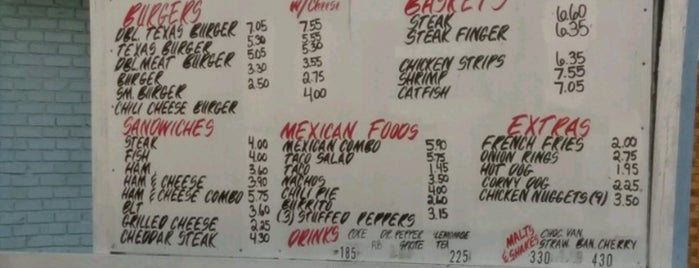 BURGERS W/Cheese
DBL TEXAS BURGER 7.05 7.55
TEXAS BURGER 5.30 5.55
DBL MEAT BURGER 5.05 5.30
BURGER 3.30 3.55
SM. BURGER 2.50 2.75
CHILI CHEESE BURGER 4.00
BASKETS
STEAK 6.60
STEAK FINGER 6.35
CHICKEN STRIPS 6.35
SHRIMP 7.55
CATFISH 7.05
SANDWICHES
STEAK 4.00
FISH 4.00
HAM 3.60
HAM & CHEESE 3.90
HAM & CHEESE COMBO 5.75
BLT 3.60
GRILLED CHEESE 2.25
CHEDDAR STEAK 4.30
MEXICAN FOODS
MEXICAN COMBO 5.90
TACO SALAD 5.75
TACO 1.45
NACHOS 3.50
CHILI PIE 4.00
BURRITO 2.60
(3) STUFFED PEPPERS 3.15
EXTRAS
FRENCH FRIES 2.00
ONION RINGS 2.75
HOT DOG 1.95
CORNY DOG 2.25
CHICKEN NUGGETS (9) 3.50
DRINKS COKE DR. PEPPER LEMONADE
RB SPRITE TEA
185 225
MALTS & SHAKES CHOC. VAN.
STRAW. BAN. CHERRY
330 430